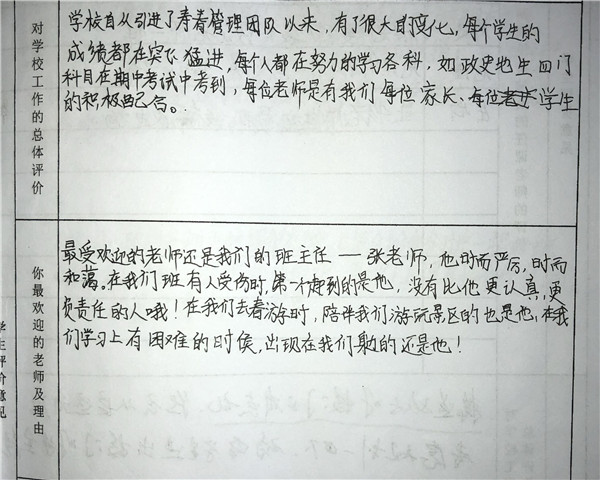 对学校工作的总体评价
学校自从引进了寿春管理团队以来,有了很大的变化,每个学生的
成绩都在突飞猛进,每个人都在努力的学习各科,如政史地生四门
科目在期中考试中考到,每位老师是有我们每位家长、每位学生
的积极配合。
你最欢迎的老师及理由
最受欢迎的老师还是我们的班主任——张老师,他时而严厉,时而
和蔼。在我们班有人受伤时,第一个赶到的是他,没有比他更认真,更
负责任的人哦!在我们去春游时,陪伴我们游玩景区的也是他,在我
们学习上有困难的时侯,出现在我们身边的还是他!
学生评价意见